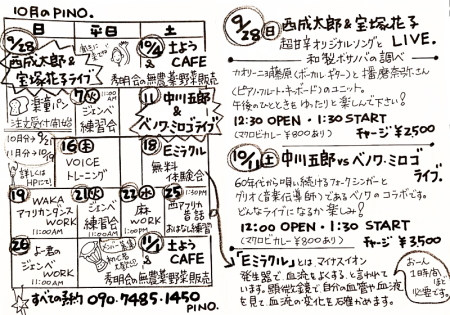 10月のPINO.
日 平日 土
9/28
西成太郎&
宝塚花子ライブ
10/4
土よう
& CAFE
秀明会の無農薬野菜販売
楽童パン
注文受付開始
10月分→9/21
11月分→10/19
詳しくは
HPにて!
7火
11:00AM
ジェンベ
練習会
11
中川五郎
&
ベノワ・ミロゴライブ
16木
VOICE
トレーニング
18
Eミラクル
無料
体験会
19
WAKA
アフリカンダンス
WORK
11:00AM
21火
ジェンベ
練習会
11:00AM
22水
麻
WORK
11:00AM
25
1:30PM
西アフリカ
昔話
おはなし練習
26
よー君の
ジェンベ
WORK
11:00AM
11/1
土よう
& CAFE
秀明会の無農薬野菜販売
すべての予約 090.7485.1450
PINO.
9/28(日) 西成太郎&宝塚花子
超甘辛オリジナルソングと LIVE.
和製ボサノバの調べ
カオリーニョ藤原(ボーカル・ギター)と
(ピアノ・フルート・キーボード)のユニット。
午後のひとときをゆったりと楽しんで下さい!
12:30 OPEN・1:30 START
(マクロビカレー¥800あり) チャージ¥2500
10/11(土) 中川五郎 vs ベノワ・ミロゴ
ライブ.
60年代から唄い続けるフォークシンガーと
グリオ(音楽伝導師)であるベノワのコラボです。
どんなライブになるか楽しみ!
12:00 OPEN・1:30 START
(マクロビカレー¥800あり) チャージ¥3,500
「Eミラクル」とは、マイナスイオン
発生器で、血流をよくする、と言われて
います。顕微鏡で、自分の血管や血液
を見て血流の変化を確かめます。
1時間ほど
必要です。